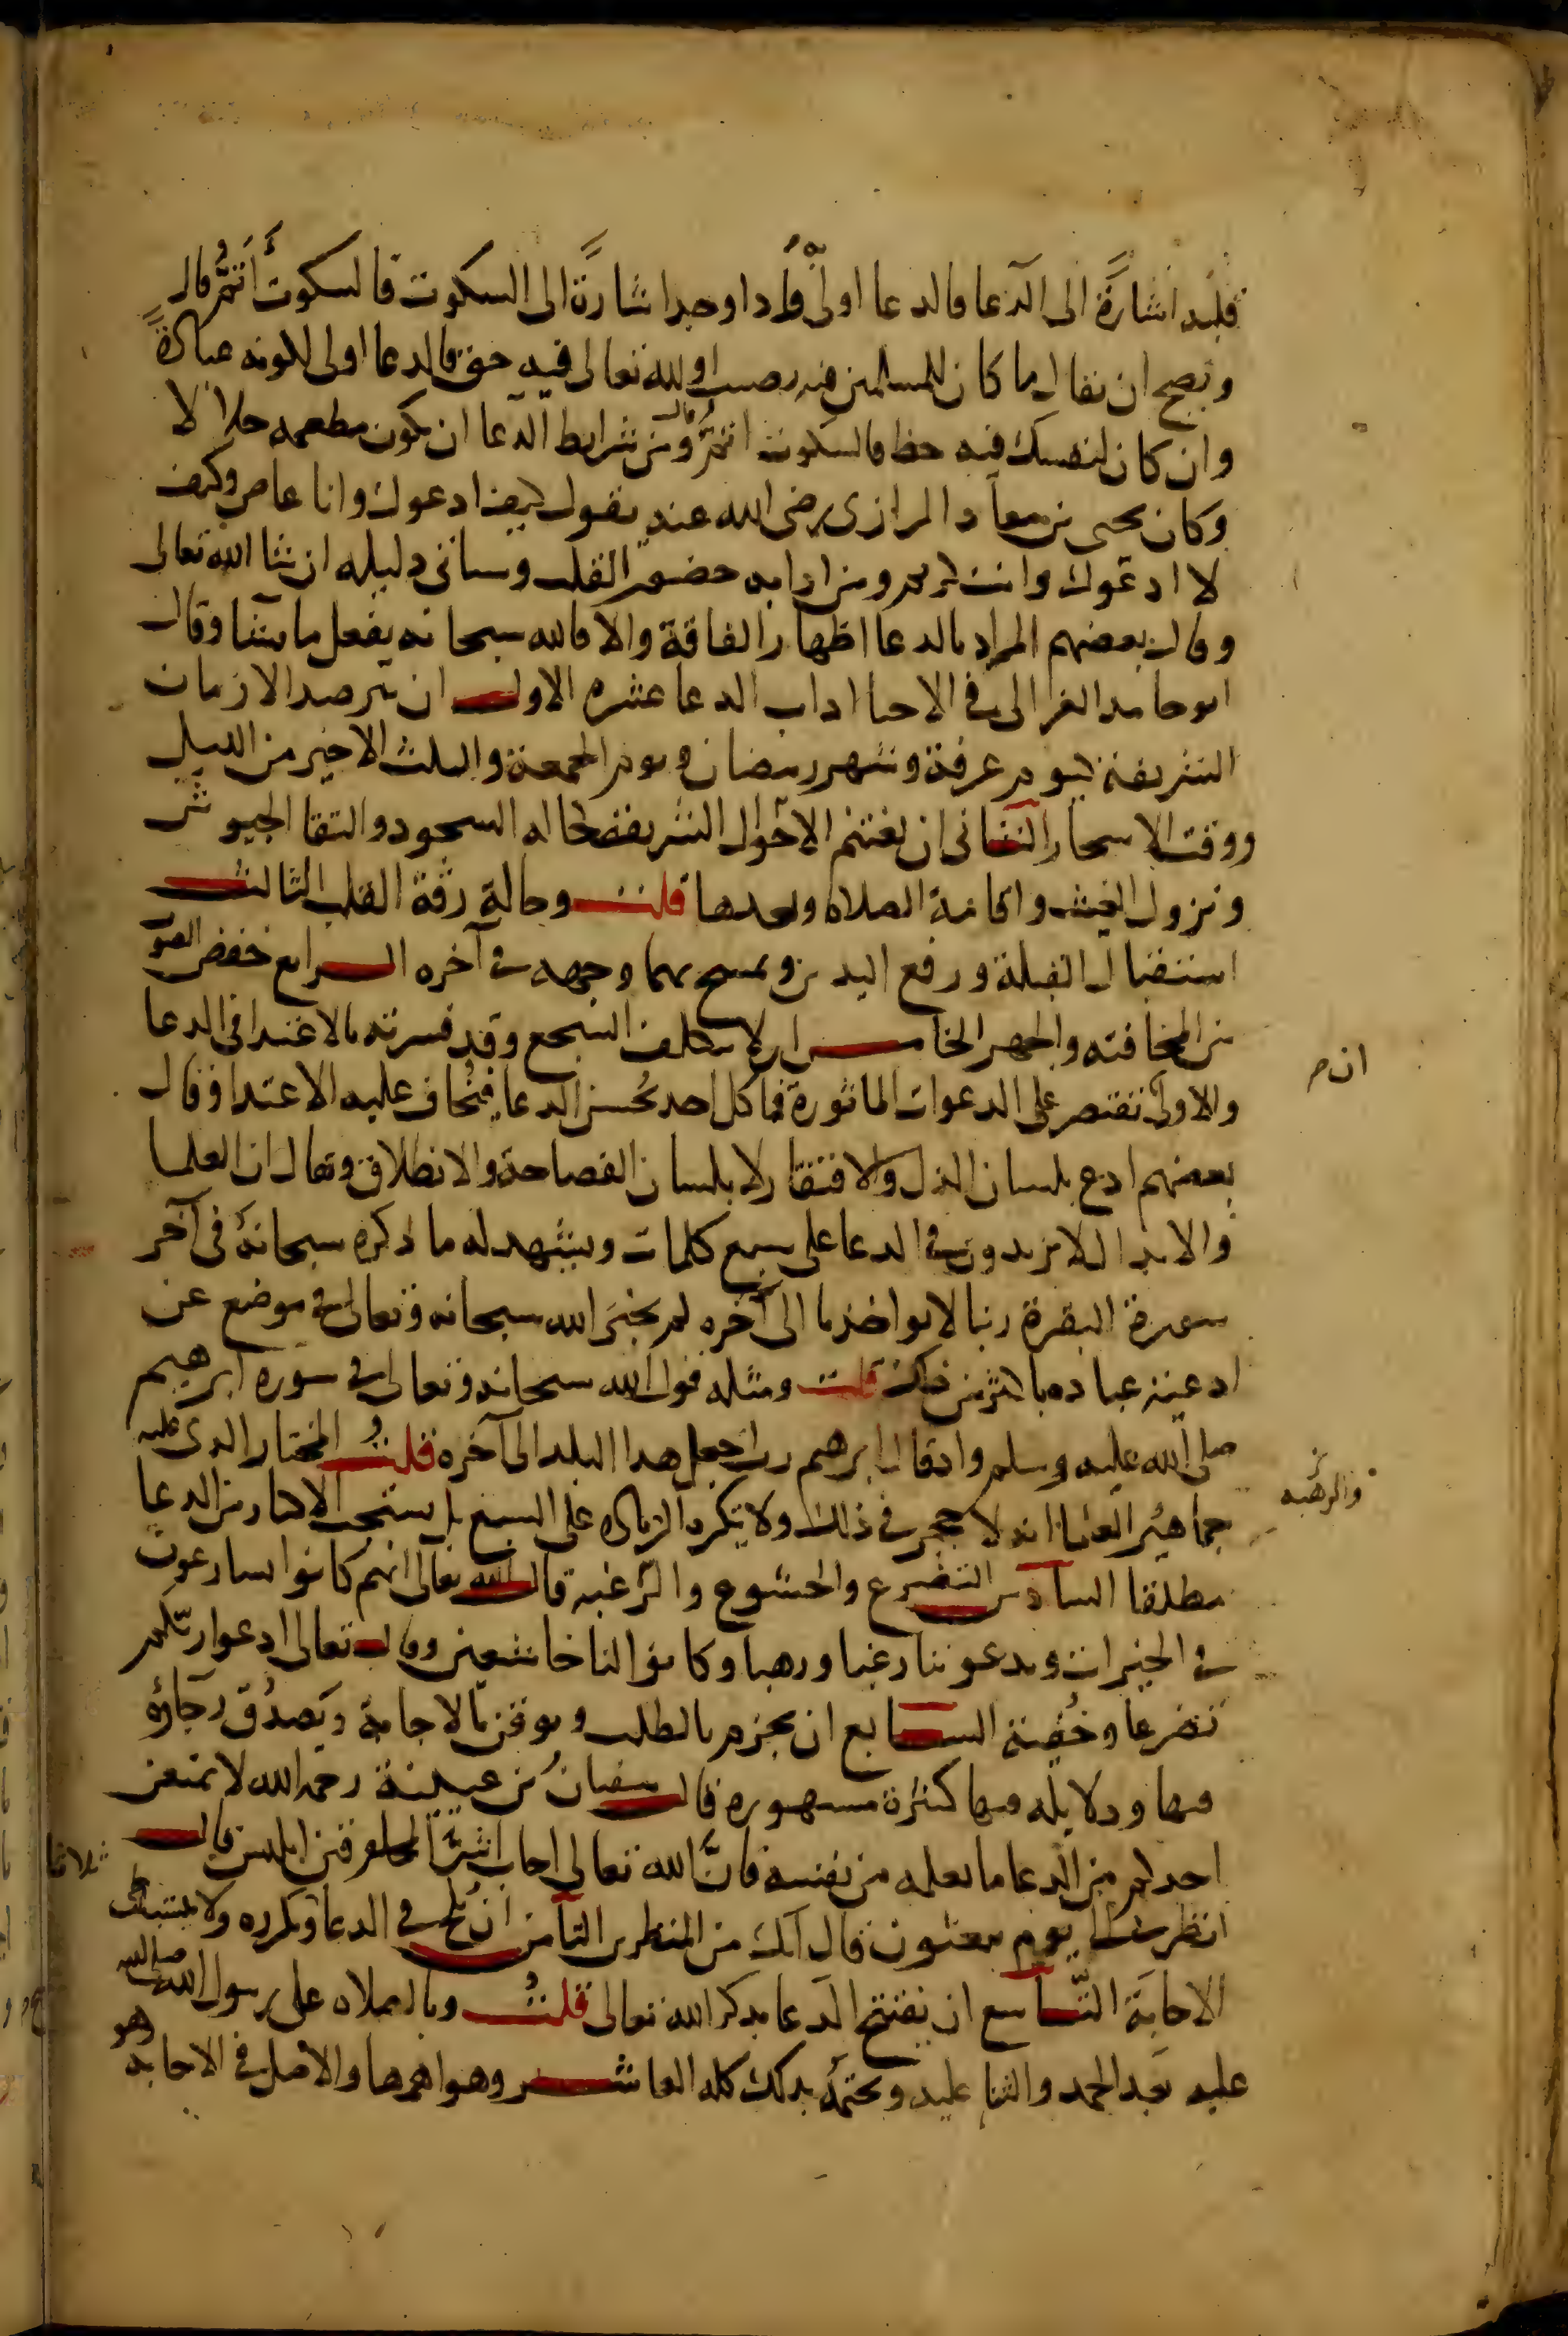 قلبه اشارَة الى الدعا فالدعا اولى فاذا وجد اشارَة الى السكوت فالسكوت أتمُّ قال
ويصح ان يقال ما كان للمسلمين فيه نصيب او لله تعالى فيه حق فالدعا اولى لكونه عبادةً
وان كان لنفسك فيه حظ فالسكوت اتمُّ قال ومن شرايط الدعا ان يكون مطعمه حلالا
وكان يحيى بن معاذ الرازى رضى الله عنه يقول كيف ادعوك وانا عاص وكيف
لا ادعوك وانت كريم ومن ادابه حضور القلب وسياتى دليله ان شا الله تعالى
وقال بعضهم المراد بالدعا اظهار الفاقة والا فالله سبحانه يفعل ما يشا وقال
ابو حامد الغزالى في الاحيا اداب الدعا عشره الاول ان يترصد الازمان
الشريفة كيوم عرفة وشهر رمضان ويوم الجمعة والثلث الاخير من الليل
ووقت الاسحار الثانى ان يغتنم الاحوال الشريفة كحاله السجود والتقا الجيوش
ونزول الغيث واقامة الصلاه وبعدها قلت وحالة رقة القلب الثالث
استقبال القبلة ورفع اليدين ويمسح بهما وجهه في آخره الرابع خفض الصوت
بين المخافته والجهر الخامس ان لا يتكلف السجع وقد فسر به الاعتدا في الدعا
والاولى ان يقتصر على الدعوات الماثورة فما كل احد يُحسن الدعا فيُخاف عليه الاعتدا وقال
بعضهم ادع بلسان الذل والافتقار لا بلسان الفصاحة والانطلاق ويقال ان العلما
والابدال لا يزيدون في الدعا على سبع كلمات ويشهد له ما ذكره سبحانه في آخر
سورة البقرة ربنا لا تواخذنا الى آخره لم يخبر الله سبحانه وتعالى في موضع عن
ادعية عباده باكثر من ذلك قلت ومثله قول الله سبحانه وتعالى في سورة ابرهيم
صلى الله عليه وسلم واذ قال ابرهيم رب اجعل هدا البلد الى آخره قلتُ المختار الذى عليه
جماهير العلما انه لا حجر في ذلك ولا تكره الزياده على السبع بل يستحب الاكثار من الدعا
مطلقا السادس التضرع والخشوع والرغبه والرهبه قال الله تعالى انهم كانوا يسارعون
في الخيرات ويدعوننا رغبا ورهبا وكانوا لنا خاشعين وقال تعالى ادعوا ربّكم
تضرعا وخُفية السابع ان يجزم بالطلب ويوقن بالاجابة ويَصدُق رجاؤه
فيها ودلايله فيها كثيرة مشهوره قال سفيان بن عيينة رحمه الله لا يمنعن
احدكم من الدعا ما يعلمه من نفسه فانَّ الله تعالى اجاب شرَّ المخلوقين ابليس قال
انظرنى الى يوم يبعثون قال انك من المنظرين الثامن ان يُلح في الدعا ويكرره ثلاثا ولا يستبطى
الاجابة التاسع ان يفتتح الدعا بذكر الله تعالى قلتُ وبالصلاه على رسول الله صلى الله
عليه بعد الحمد والثنا عليه ويختمه بذلك كله العاشر وهو اهمها والاصل في الاجابة وهو